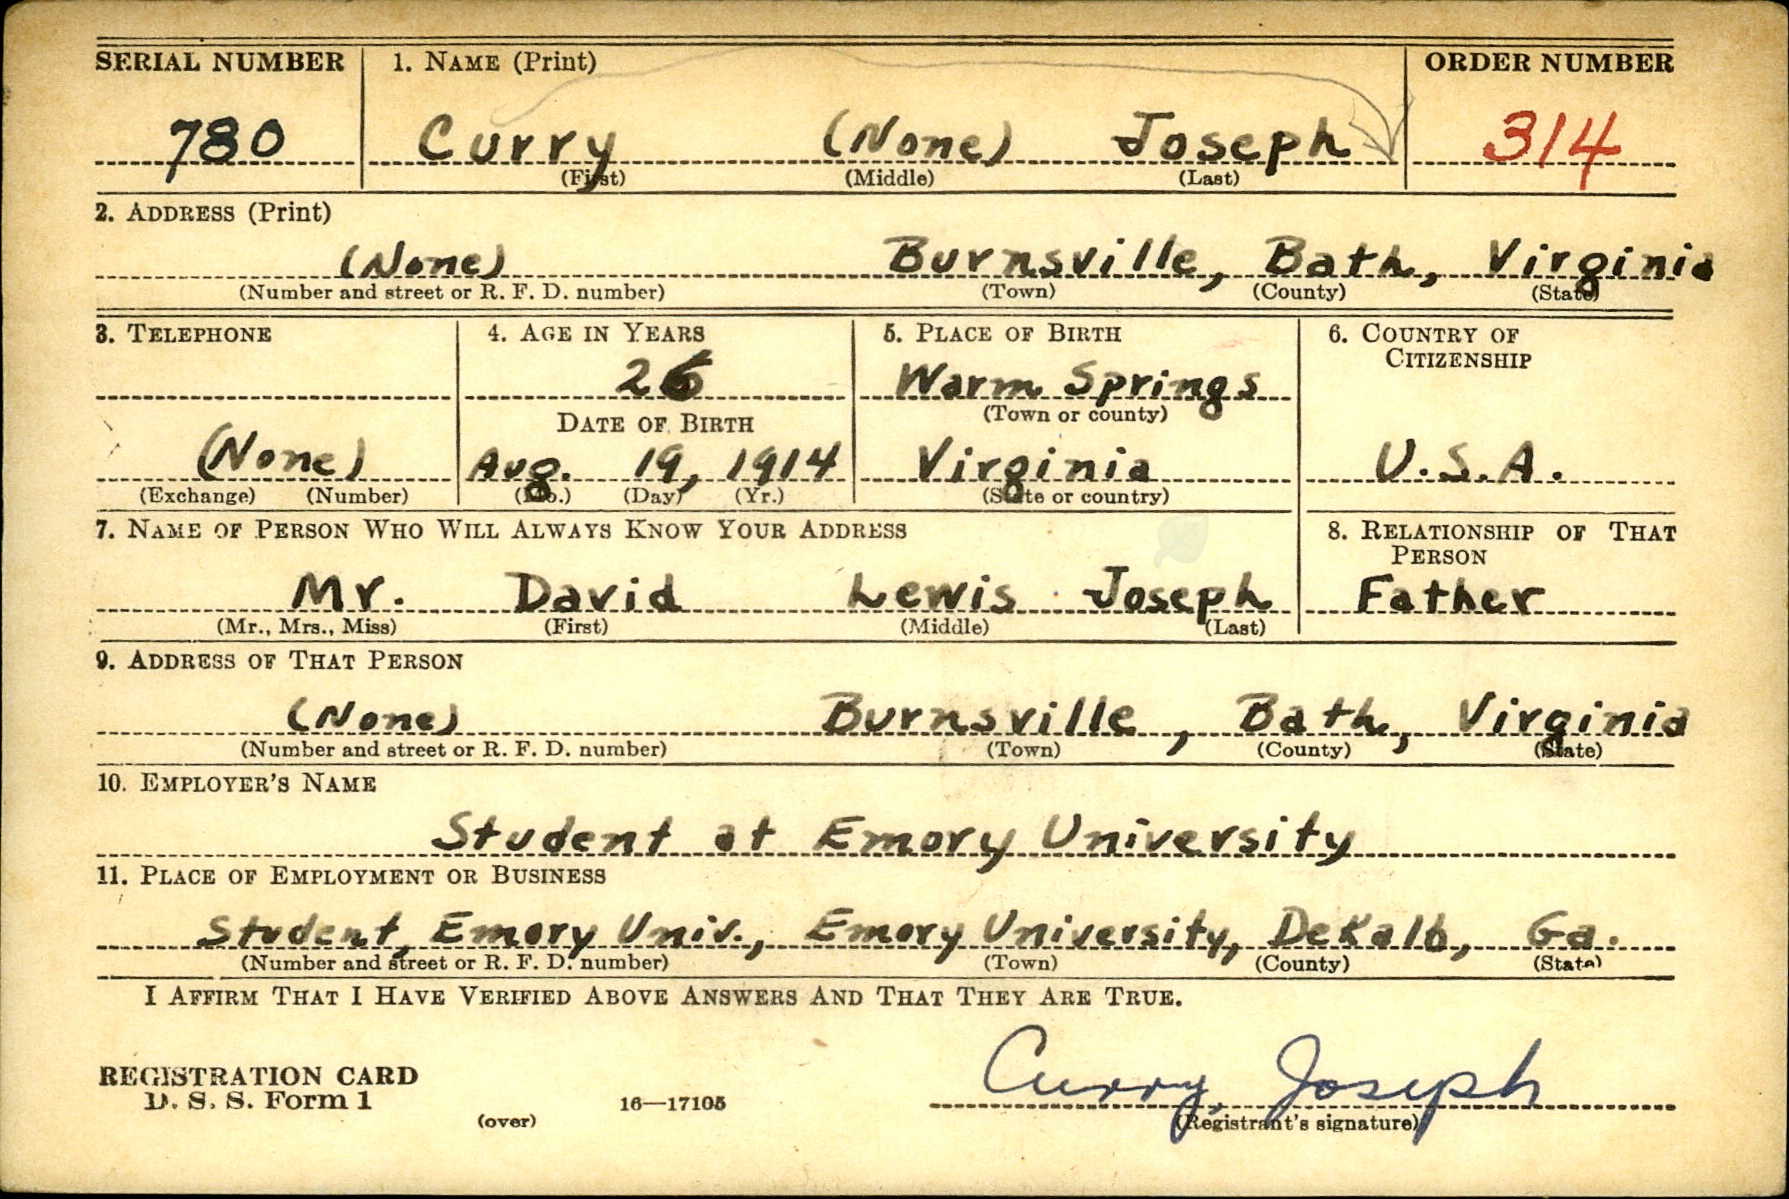 SERIAL NUMBER 1. NAME (Print) ORDER NUMBER
780 Curry (None) Joseph 314
(First) (Middle) (Last)
2. ADDRESS (Print)
(None) Burnsville, Bath, Virginia
(Number and street or R. F. D. number) (Town) (County) (State)
3. TELEPHONE 4. AGE IN YEARS 5. PLACE OF BIRTH 6. COUNTRY OF
CITIZENSHIP
26 Warm Springs
(Town or county)
DATE OF BIRTH
(None) Aug. 19, 1914 Virginia U.S.A.
(Exchange) (Number) (Mo.) (Day) (Yr.) (State or country)
7. NAME OF PERSON WHO WILL ALWAYS KNOW YOUR ADDRESS 8. RELATIONSHIP OF THAT
PERSON
Mr. David Lewis Joseph Father
(Mr., Mrs., Miss) (First) (Middle) (Last)
9. ADDRESS OF THAT PERSON
(None) Burnsville, Bath, Virginia
(Number and street or R. F. D. number) (Town) (County) (State)
10. EMPLOYER'S NAME
Student at Emory University
11. PLACE OF EMPLOYMENT OR BUSINESS
Student, Emory Univ., Emory University, DeKalb, Ga.
(Number and street or R. F. D. number) (Town) (County) (State)
I AFFIRM THAT I HAVE VERIFIED ABOVE ANSWERS AND THAT THEY ARE TRUE.
Curry, Joseph
REGISTRATION CARD
D. S. S. Form 1 16—17105
(over) (Registrant's signature)